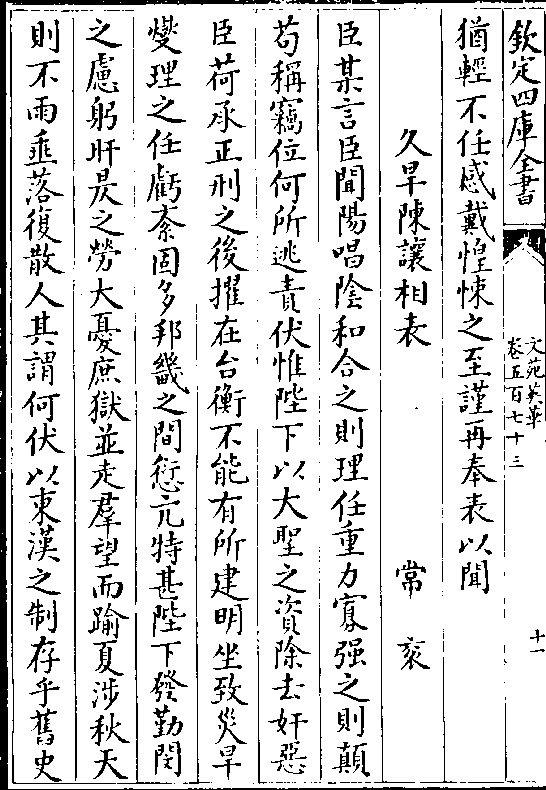 欽定四庫全書
文苑英華
卷五百七十三
十一
猶輕不任感戴惶悚之至謹再奉表以聞
久旱陳讓相表 常衮
臣某言臣聞陽唱陰和合之則理任重力寡强之則顛
苟稱竊位何所逃責伏惟陛下以大聖之資除去奸惡
臣荷承正刑之後擢在台衡不能有所建明坐致災旱
燮理之任虧紊固多邦畿之間愆亢特甚陛下發勤閔
之慮躬旰昃之勞大憂庶獄並走羣望而踰夏涉秋天
則不雨垂落復散人其謂何伏以東漢之制存乎舊史